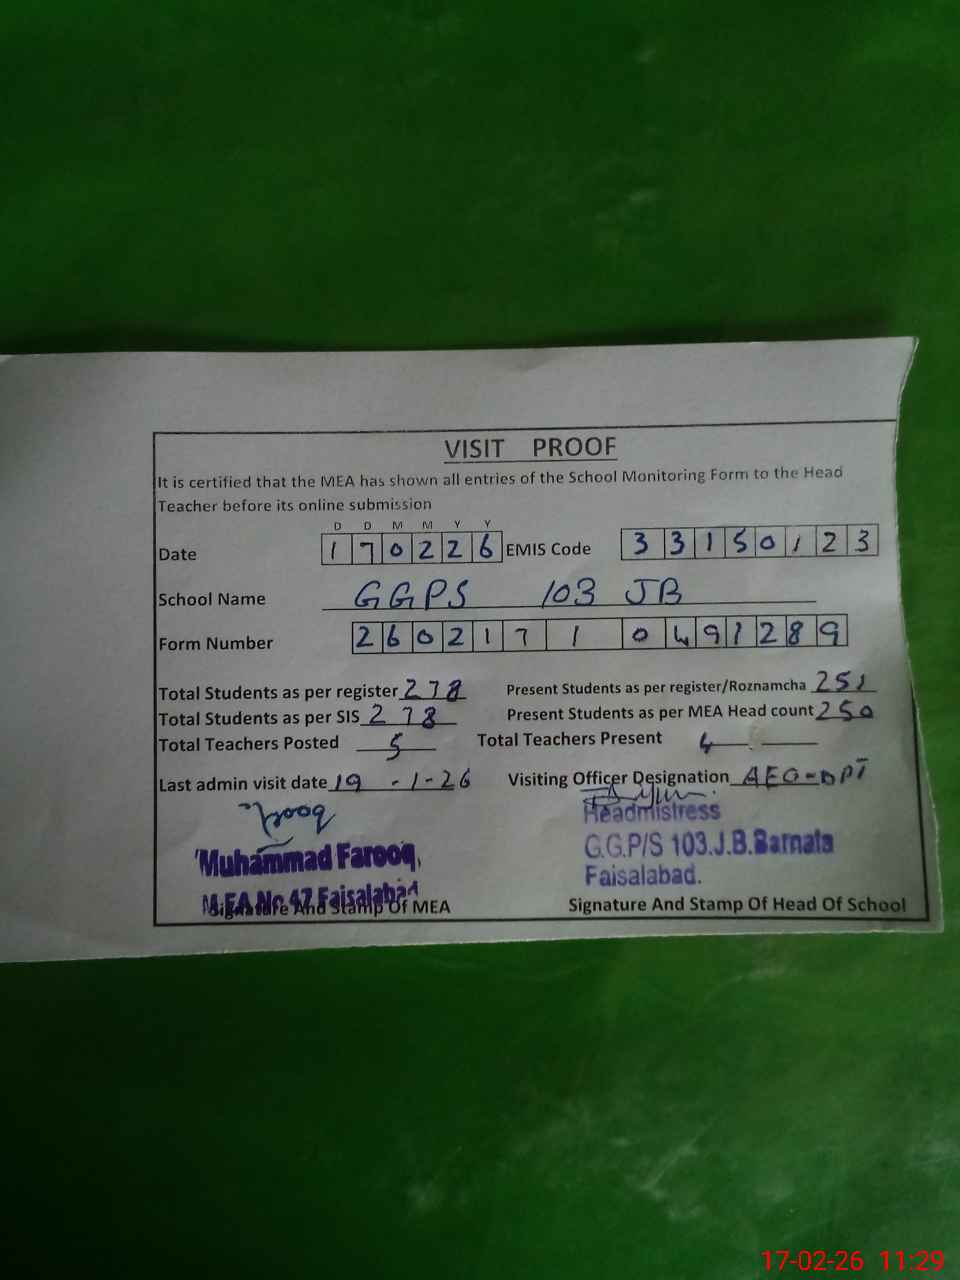 VISIT PROOF
It is certified that the MEA has shown all entries of the School Monitoring Form to the Head
Teacher before its online submission
D D M M Y Y
Date 170226 EMIS Code 33150123
School Name GGPS 103 JB
Form Number 26021710491289
Total Students as per register 278 Present Students as per register/Roznamcha 251
Total Students as per SIS 278 Present Students as per MEA Head count 250
Total Teachers Posted 5 Total Teachers Present 4
Last admin visit date 19-1-26 Visiting Officer Designation AEO-DPI
Farooq
Headmistress
Muhammad Farooq, G.G.P/S 103.J.B.Barnala
M.E.A No.47 Faisalabad Faisalabad.
Signature And Stamp Of MEA Signature And Stamp Of Head Of School
17-02-26 11:29